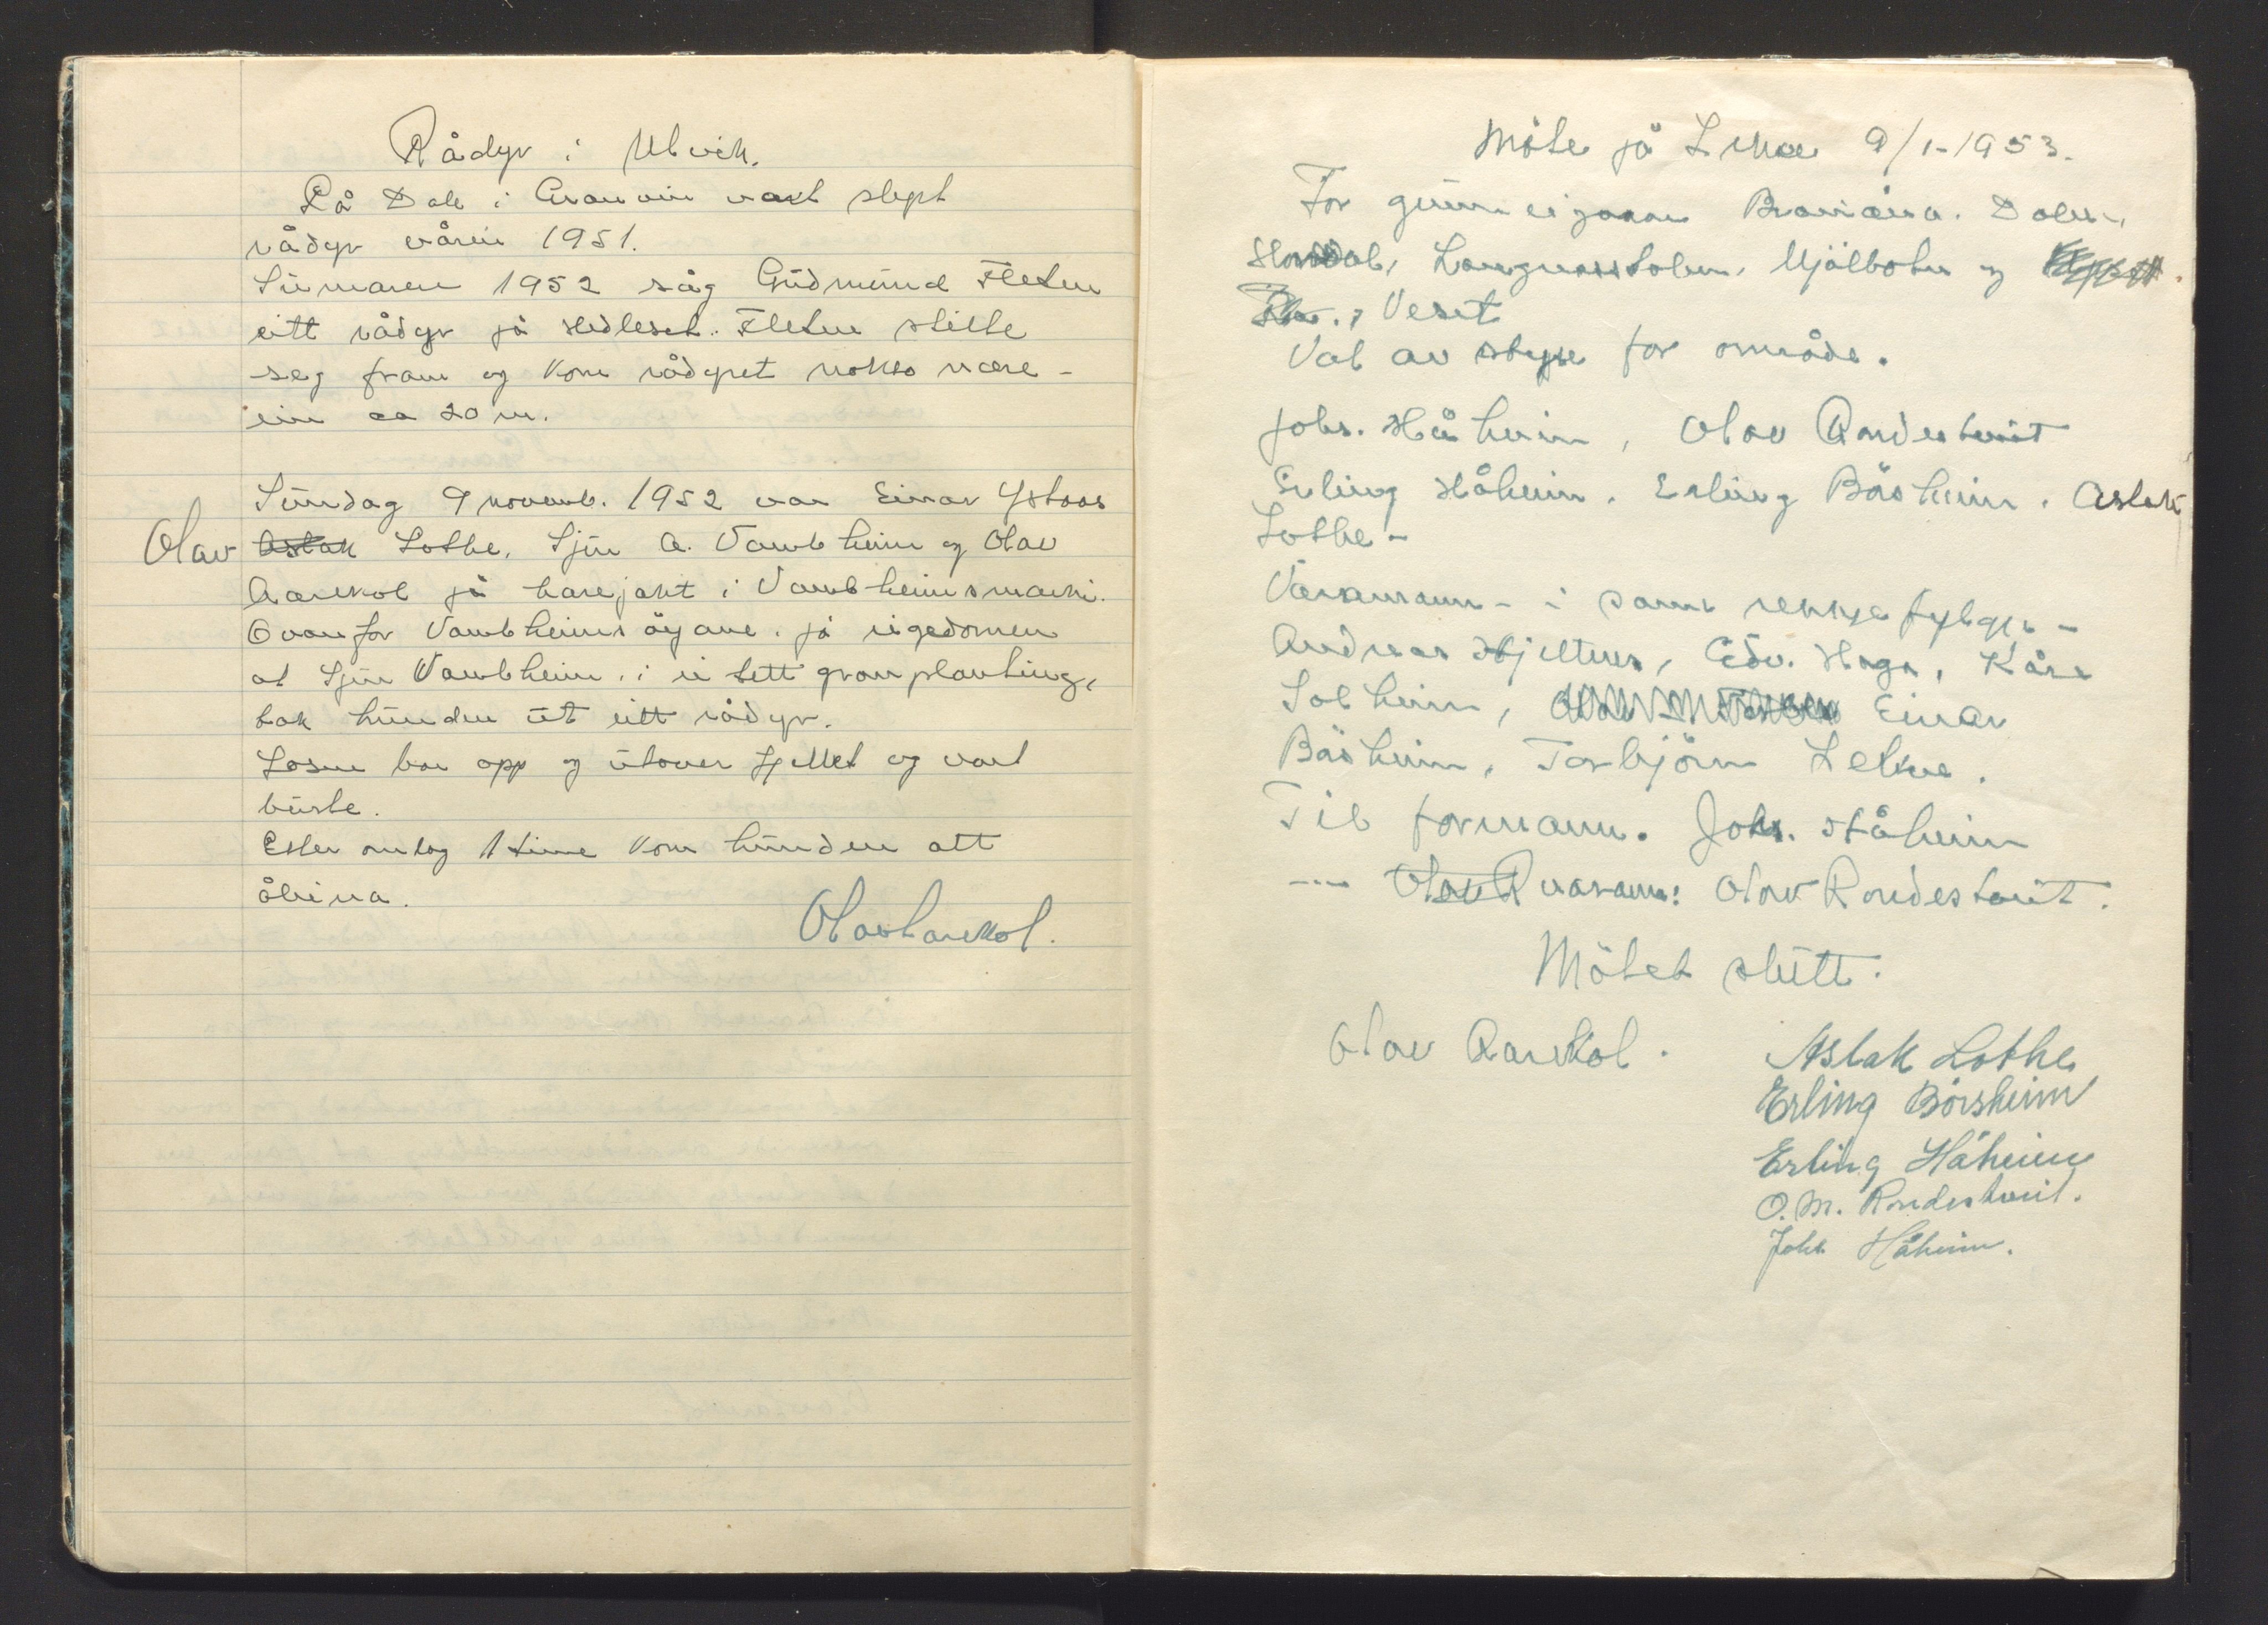 Rådyr i Ulvik.
På Dale i Granvin vart slept
rådyr våren 1951.
Sumaren 1952 såg Gudmund Fleten
eitt rådyr på Hedleset. Fleten stillte
seg fram og kom rådyret nokso nære -
ein ca 20 m.
Sundag 9 novemb. 1952 var Einar Ystaas
Olav Aslak Lothe, Sjur A. Vambheim og Olav
Aarekol på harejakt i Vambheimsmarki.
Ovanfor Vambheimsöyane. på eigedomen
at Sjur Vambheim. i ei tett granplanting,
tok hunden ut eitt rådyr.
Losen bar opp og utover fjellet og vart
burte.
Etter omlag 1 time kom hunden att
åleina.
Olav Aarekol.
Möte på Lekve 9/1-1953.
For grunneigarane Dalen,
Langvasstolen, Mjölbotn og
Veset
Val av styre for område.
Johs. Håheim, Olav Rondestveit
Erling Håheim. Erling Börsheim. Aslak
Lothe -
Varamann - i same rekkje fylgje -
Andreas Hjeltnes, Edv. Haga, Kåre
Solheim, Einar
Börsheim, Torbjörn Lekve.
Til formann. Johs. Håheim
--- Olav R varam: Olav Rondestveit.
Mötet slutt.
Olav Aarekol.
Aslak Lothe
Erling Börsheim
Erling Håheim
O. M. Rondestveit.
Johs Håheim.